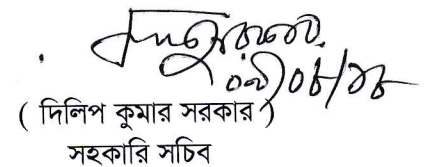 ০৯/০৮/১৮
( দিলিপ কুমার সরকার )
সহকারি সচিব